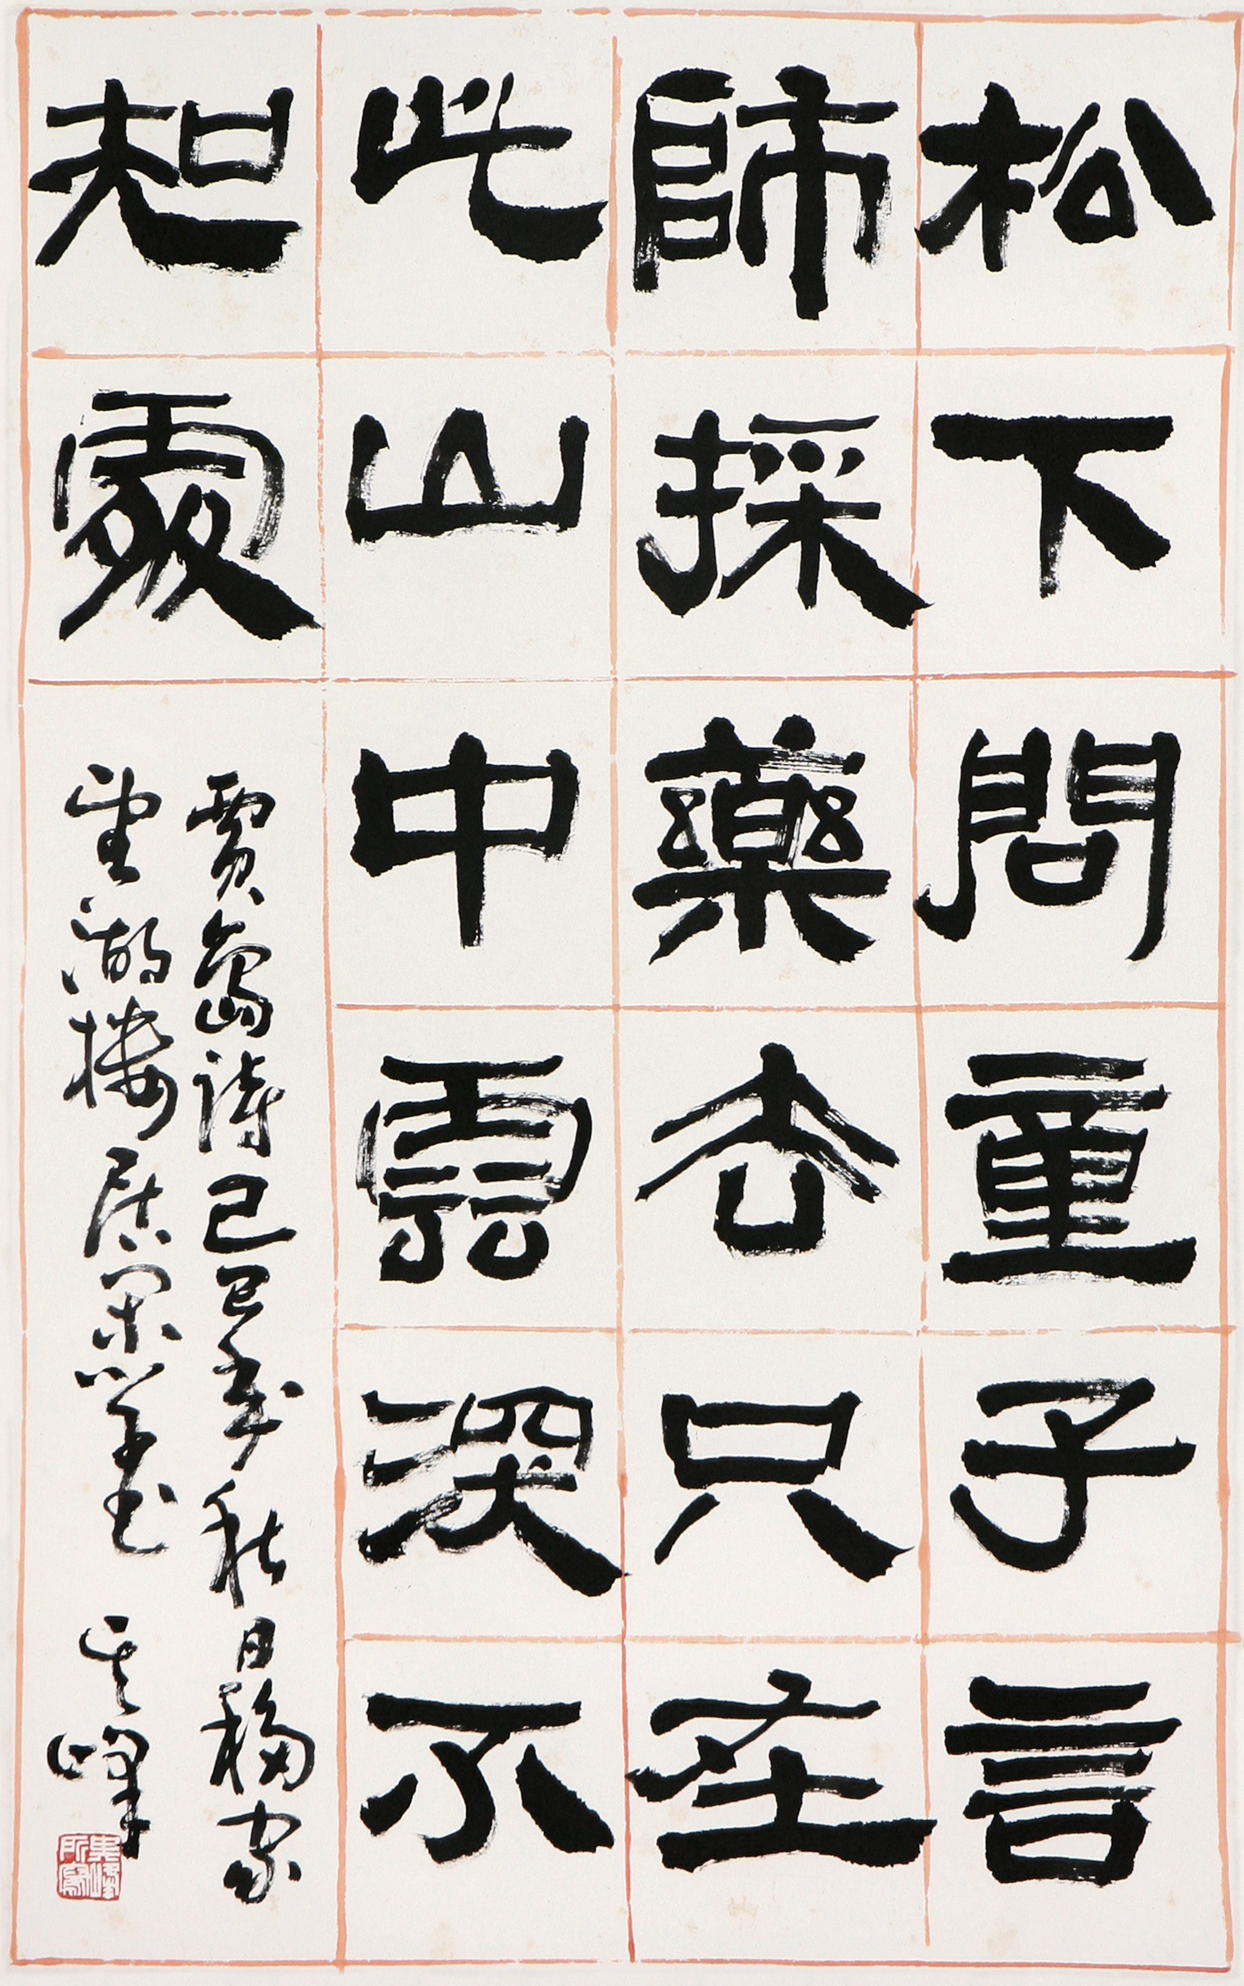 松下問童子言
師採藥去只在
此山中雲深不
知處
賈島詩己巳年秋日移家
望湖樓居 其峰
其峰所寫